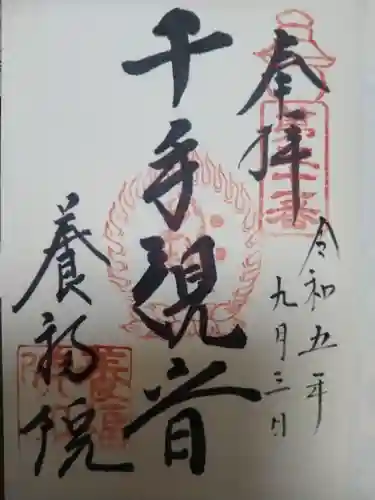 奉拝
第二番
令和五年
九月三日
千手現音
養福院